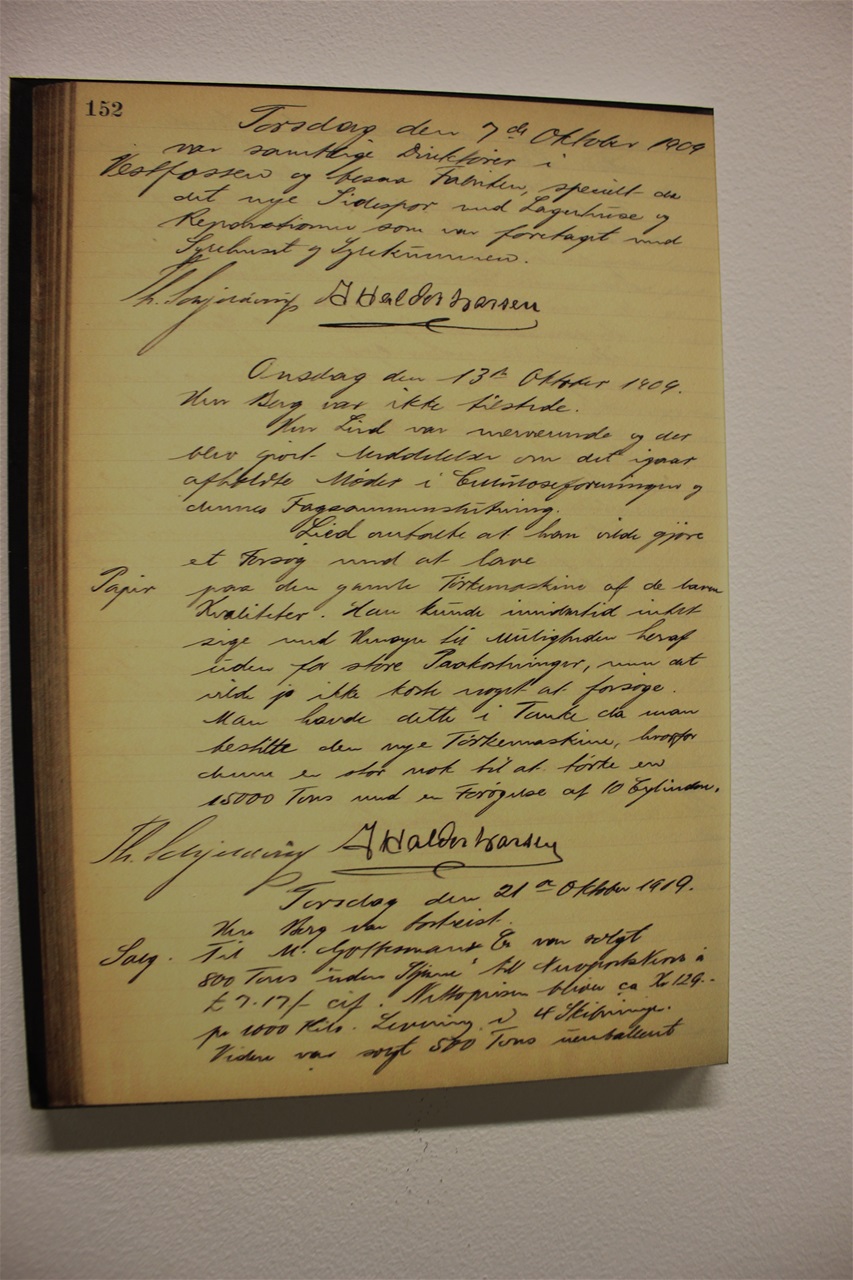 152
Torsdag den 7de Oktober 1909
var samtlige Direktører i
Vestfossen og besaa Fabriken, specielt da
det nye Sidespor med Lagerhuse og
Reparationer som var foretaget med
Syrehuset og
Th. Schjelderup
Onsdag den 13de Oktober 1909.
Herr Berg var ikke tilstede.
Herr Lied var nærværende og der
blev gjort Meddelelse om det igaar
afholdte Møder i Celluloseforeningen og
dennes Fagsammenslutning.
Lied antydede at han vilde gjøre
et Forsøg med at lave
Papir paa den gamle Törkemaskine af de bare
Kvaliteter. Han kunde imidlertid intet
sige med Hensyn til Muligheden heraf
uden for store Paakostninger, men det
vilde jo ikke koste noget at forsøge.
Man havde dette i Tanke da man
bestilte den nye Törkemaskine, hvorfor
denne er stor nok til at törke en
15000 Tons med en Forøgelse af 10 Cylindere.
Th. Schjelderup
Torsdag den 21de Oktober 1909.
Herr Berg var bortreist.
Salg. Til M. & Co var solgt
800 Tons til à
£ 7.17/- cif. Nettoprisen bliver ca Kr 129.-
pr 1000 Kilo. Levering i 4 Skibninger.
Videre var solgt 500 Tons uemballert